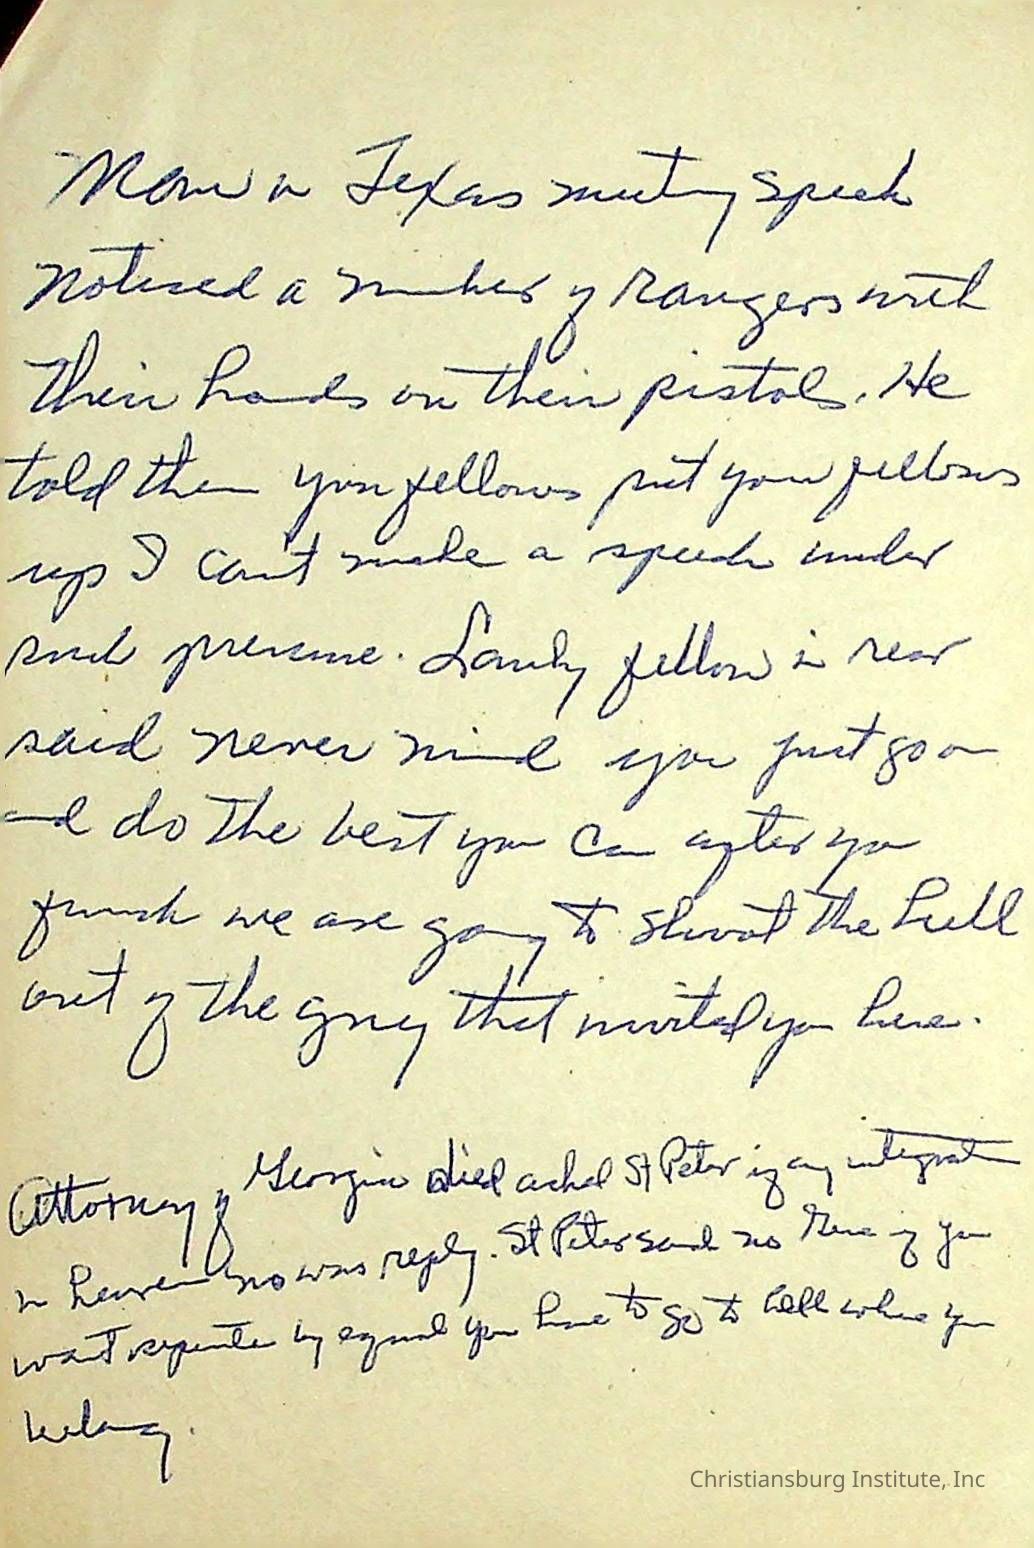 Man in Texas meeting speak
Noticed a number of Rangers with
their hands on their pistols. He
told them you fellows put your
up I can't make a speech under
such pressure. Lanky fellow in rear
said never mind you just go on
and do the best you can after you
finish we are going to shoot the hell
out of the guy that invited you here.
Attorney of Georgia died asked St Peter if any integration
in heaven no was reply. St Peter said no Gene if you
want separate by equal you have to go to hell where you
belong.
Christiansburg Institute, Inc